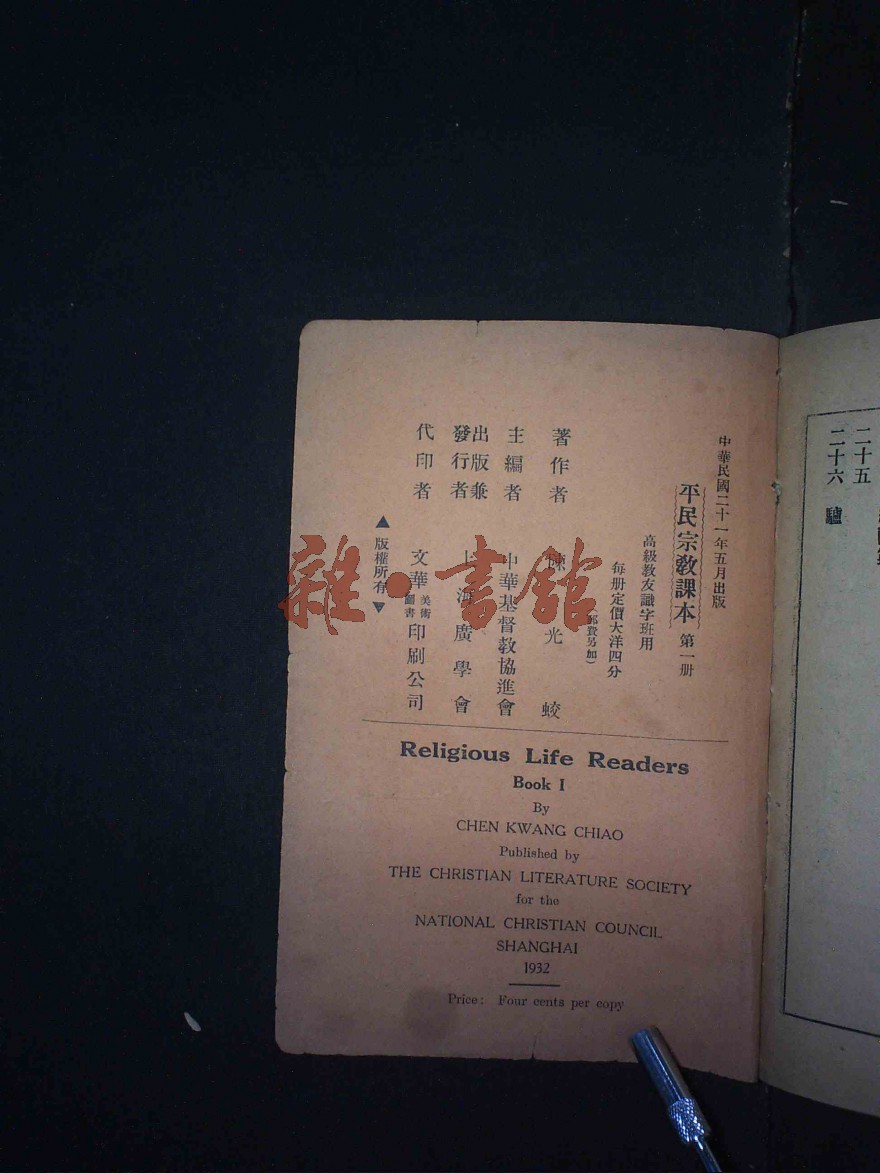 中華民國二十一年五月出版
平民宗教課本 第一册
高級教友識字班用
每册定價大洋四分
(郵費另加)
著作者 陳光蛟
主編者 中華基督教協進會
出版兼發行者 上海廣學會
代印者 文華美術圖書印刷公司
▲版權所有▼
Religious Life Readers
Book I
By
CHEN KWANG CHIAO
Published by
THE CHRISTIAN LITERATURE SOCIETY
for the
NATIONAL CHRISTIAN COUNCIL
SHANGHAI
1932
Price: Four cents per copy
二十五
二十六 驢
雜·書館